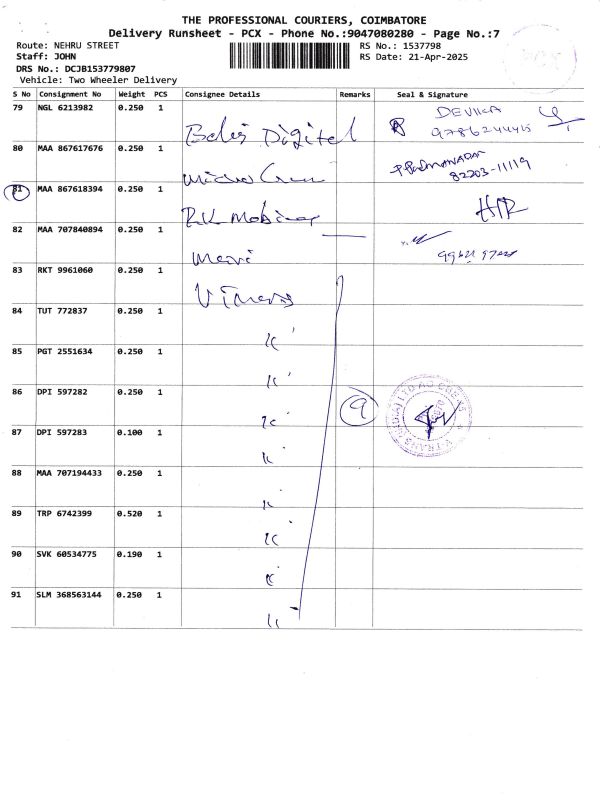 THE PROFESSIONAL COURIERS, COIMBATORE
Delivery Runsheet - PCX - Phone No.:9047080280 - Page No.:7
Route: NEHRU STREET RS No.: 1537798
Staff: JOHN RS Date: 21-Apr-2025
DRS No.: DCJB153779807
Vehicle: Two Wheeler Delivery
S No Consignment No Weight PCS Consignee Details Remarks Seal & Signature
79 NGL 6213982 0.250 1 Digital DEVIKA
80 MAA 867617676 0.250 1 82203-11119
81 MAA 867618394 0.250 1 RK Mobiles
82 MAA 707840894 0.250 1
83 RKT 9961060 0.250 1
84 TUT 772837 0.250 1
85 PGT 2551634 0.250 1
86 DPI 597282 0.250 1 9
87 DPI 597283 0.100 1
88 MAA 707194433 0.250 1
89 TRP 6742399 0.520 1
90 SVK 60534775 0.190 1
91 SLM 368563144 0.250 1